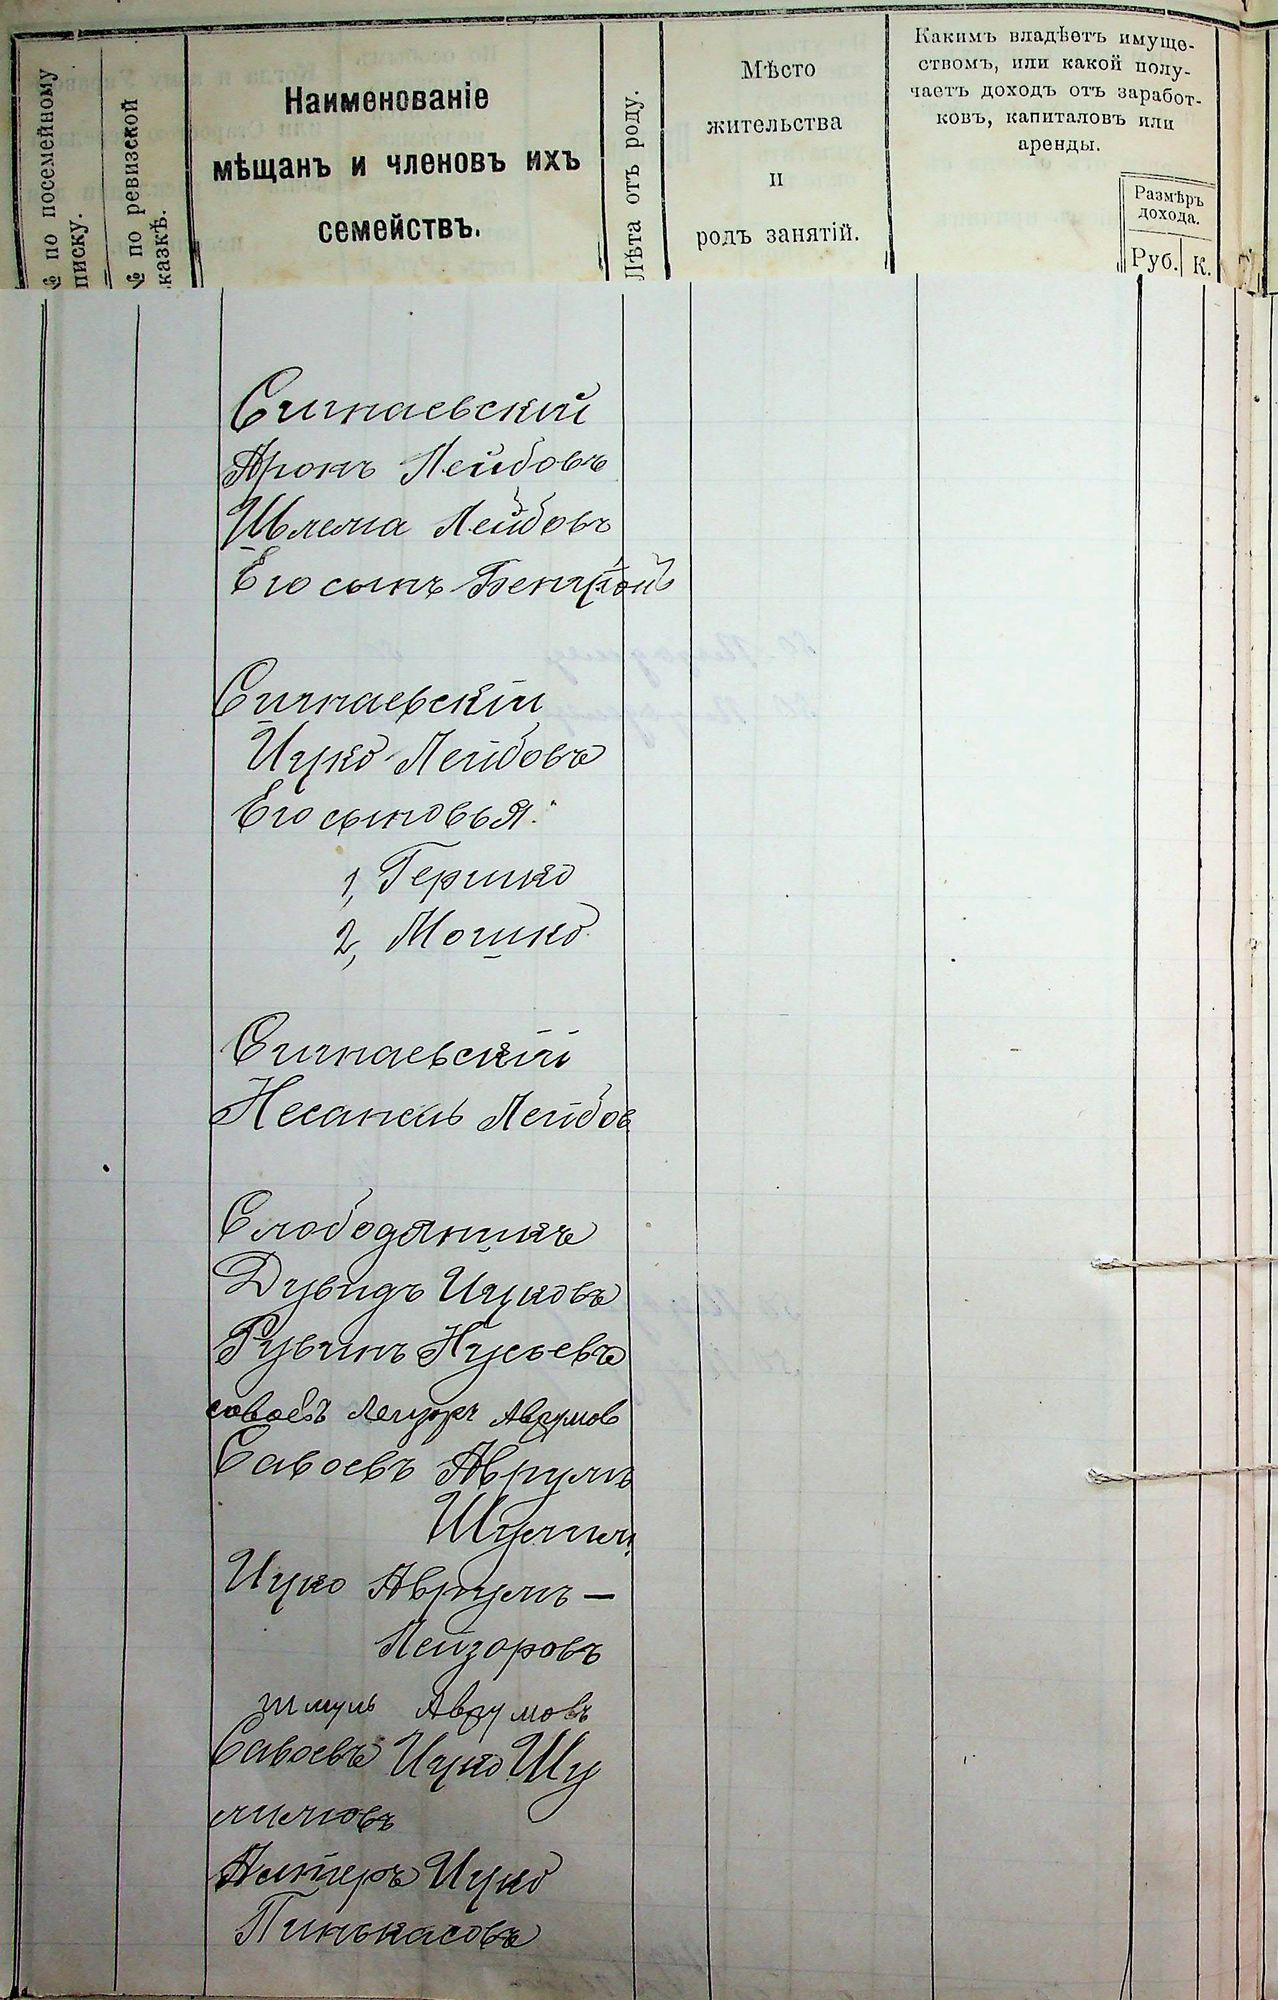 № по посемейному
списку.
№ по ревизской
сказкѣ.
Наименованіе
мѣщанъ и членовъ ихъ
семействъ.
Лѣта отъ роду.
Мѣсто
жительства
и
родъ занятій.
Какимъ владѣетъ имуще-
ствомъ, или какой полу-
чаетъ доходъ отъ заработ-
ковъ, капиталовъ или
аренды.
Размѣръ
дохода.
Руб. К.
Синаевскій
Аронъ Лейбовъ
Шлема Лейбовъ
Его сынъ Бенціонъ
Синаевскій
Ицко Лейбовъ
Его сыновья:
1, Гершко
2, Мошко
Синаевскій
Несанель Лейбов
Слободяникъ
Дувидъ Ицковъ
Рувинъ Нусьевъ
Савоевъ Лейзоръ Аврумов
Савоевъ Аврумъ
Ицко Аврумъ —
Лейзоровъ
Шмуль Аврумовъ
Савоевъ Ицко Шу
лимовъ
Альтеръ Ицко
Пинькасовъ